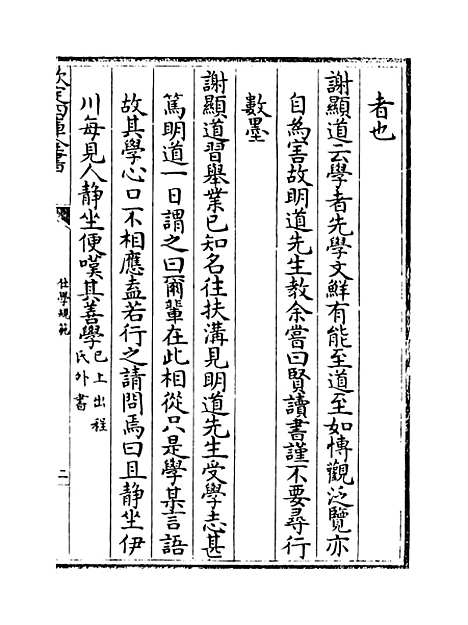 者也
謝顯道云學者先學文鮮有能至道至如博觀泛覽亦
自為害故明道先生教余嘗曰賢讀書謹不要尋行
數墨
謝顯道習舉業已知名往扶溝見明道先生受學志甚
篤明道一日謂之曰爾輩在此相從只是學某言語
故其學心口不相應盍若行之請問焉曰且静坐伊
川每見人静坐便嘆其善學已上出程氏外書
欽定四庫全書
仕學規範
二